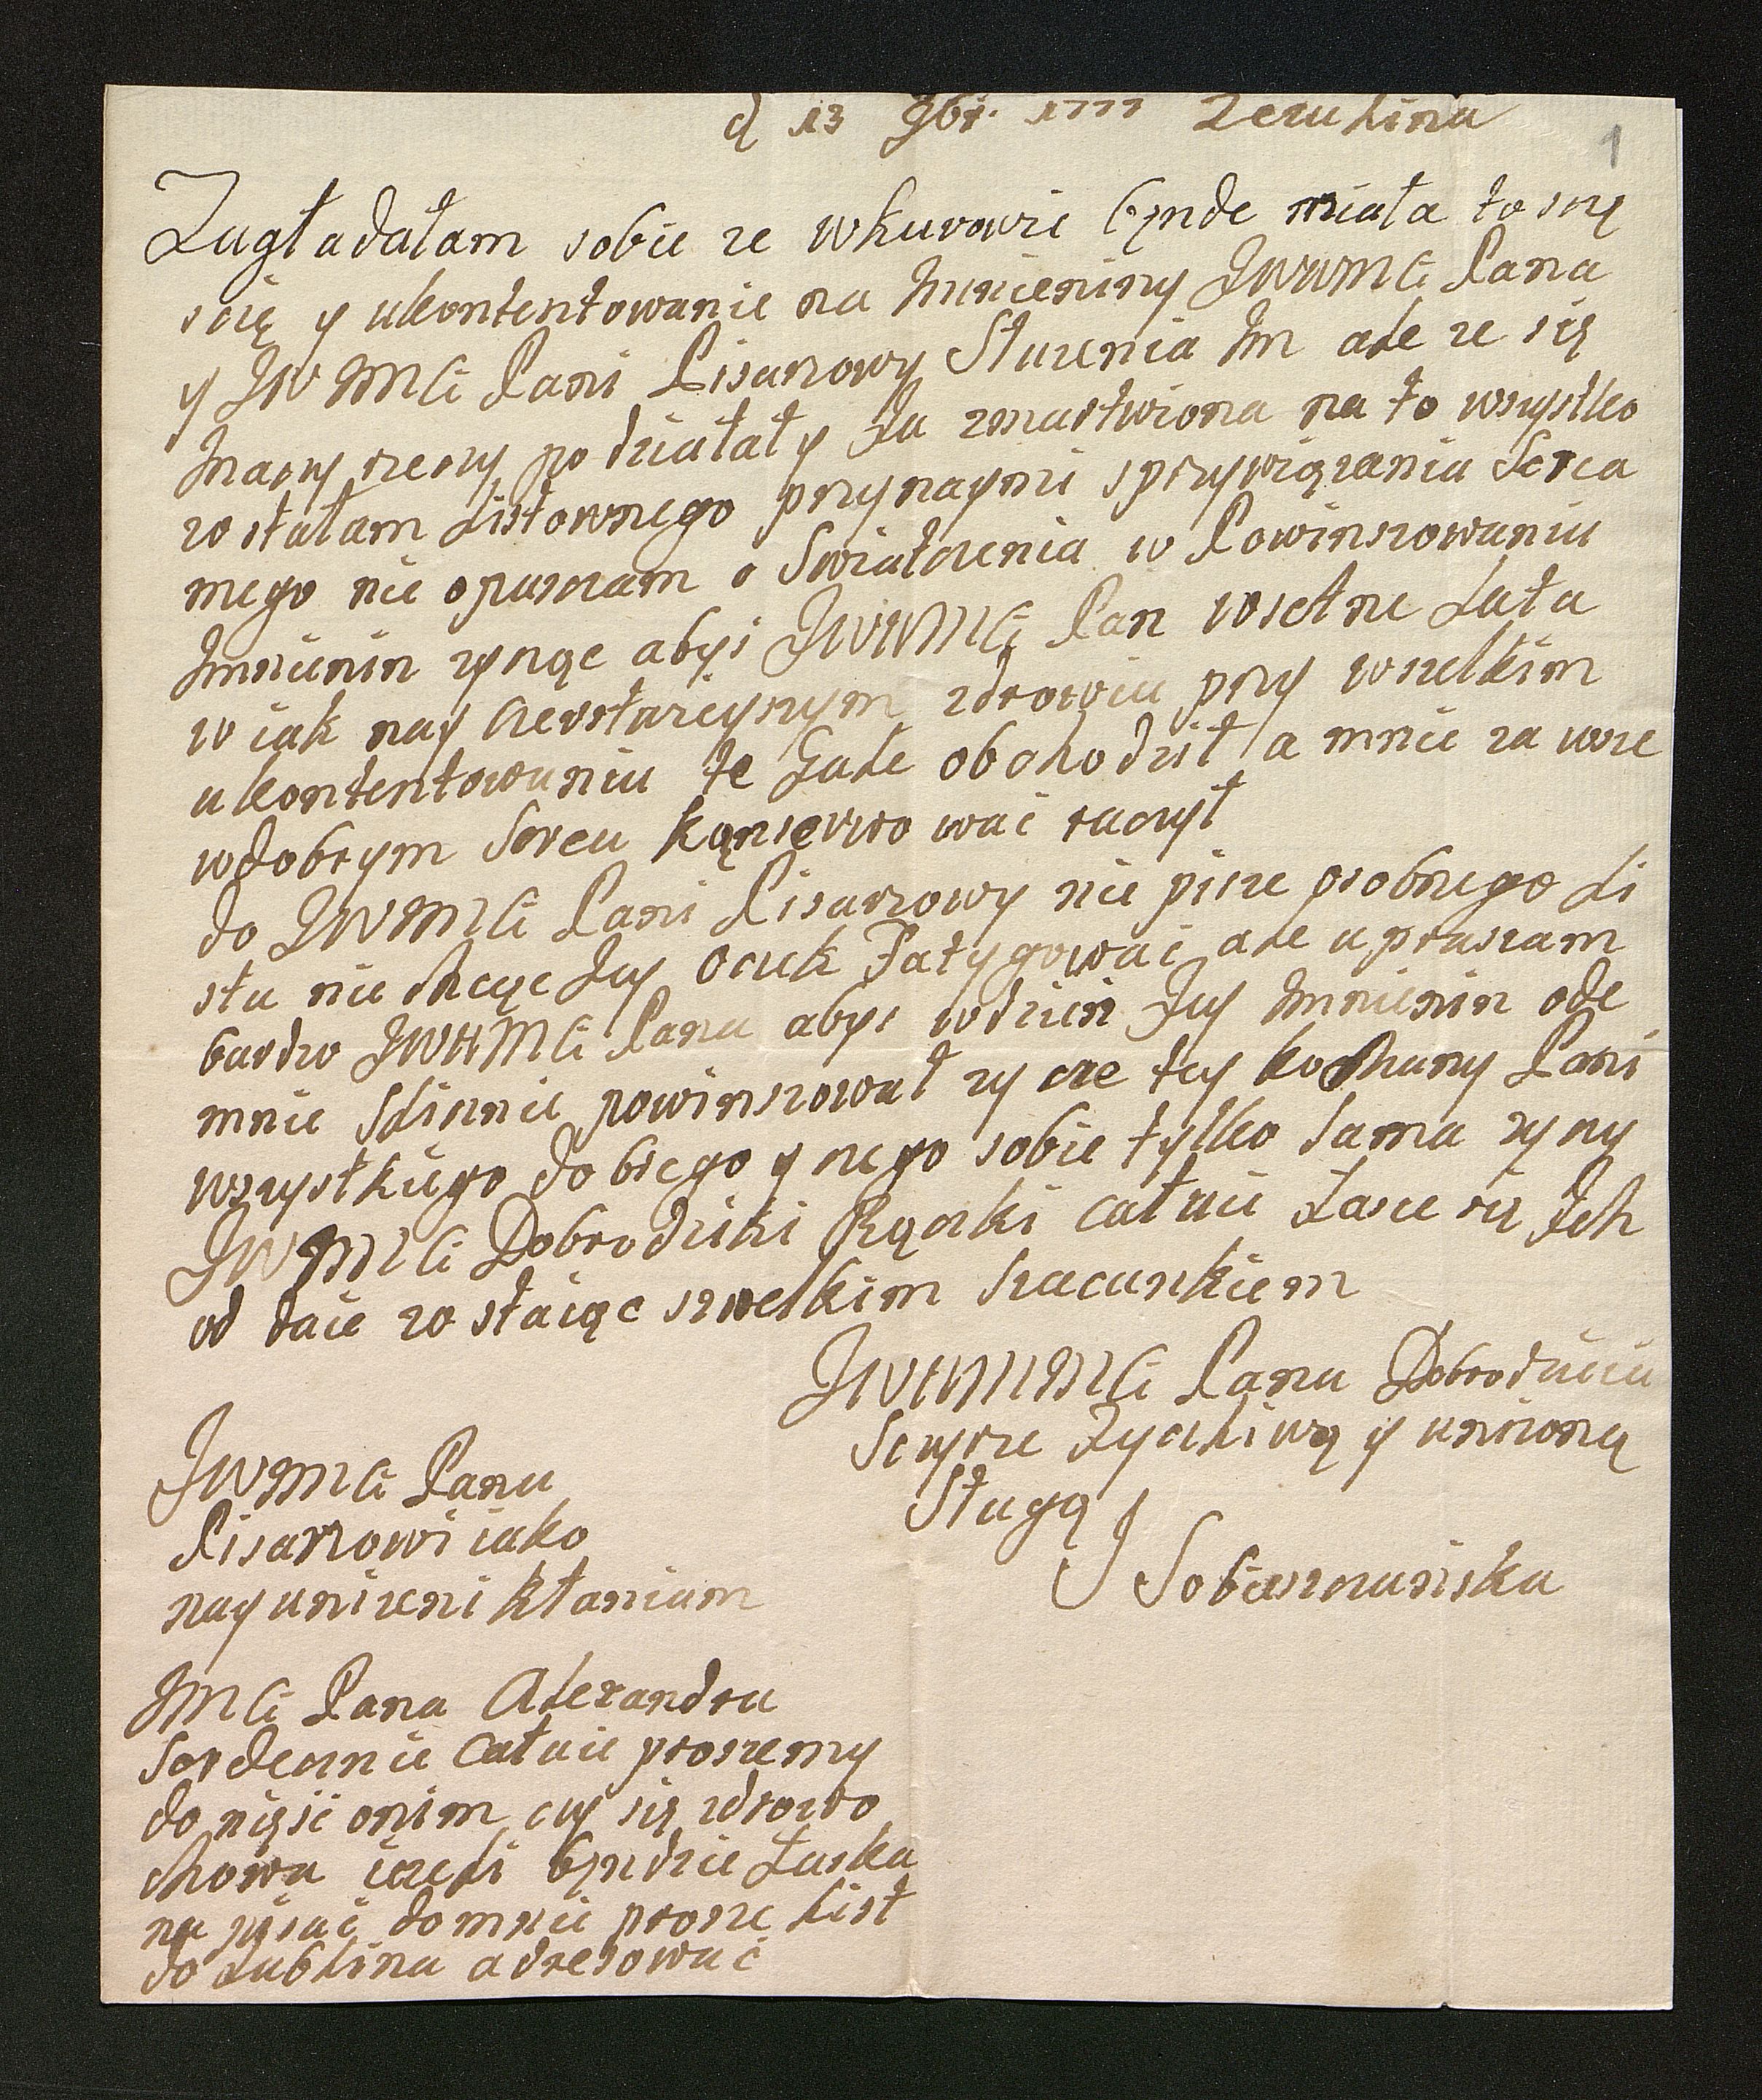 d 13 9br. 1777 Zezulina
1
Zagładałam sobie ze wkurowie bynde miała to sczę
scię y ukontentowanie na Imnieniny JWWMCi Pana
y JWMCi Pani Pisarzowy Słuzenia Im ale ze się
Inaczy rzeczy podziałały Ja zmartwiona na to wszystko
zostałam Listownego przynaymi sprzywiązania Serca
mego nie opuszczam o Swiatdczenia w Powinszowaniu
Imnienin zyncąc abyś JWWMCi Pan wsetne Lata
w iak nay czerstwieyszym zdrowiu przy wszelkim
ukontentowaniu te Gale obchodził a mnie zawsze
wdobrym Sercu kąnserwować raczył
do JWMCi Pani Pisarzowy nie pisze osobnego Li
stu nie chcąc Jey Oczek Fatygować ale upraszam
bardzo JWWMCi Pana abys wdzień Jey Imnienin ode
mnie Slicznie powinszował zycze tey kochany Pani
wszystkiego dobrego y czego sobie tylko Sama zyczy
JWMCi Dobrodziki Rączki całuie Łasce się Ich
oddaie zostaiąc swelkim szacunkiem
JWWMMCi Pana Dobrodzieia
Sczyrze Zyczliwą y unizoną
Sługą
J Sobieszczańska
JWMCi Panu
Pisarzowi iako
nayunizeni kłaniam
JMCi Pana Alexandra
Serdecznie Całuie proszemy
donięść onim czy się zdrowo
chowa iezeli byndzie Łaska
napisać domnie prosze List
do Lublina adresować